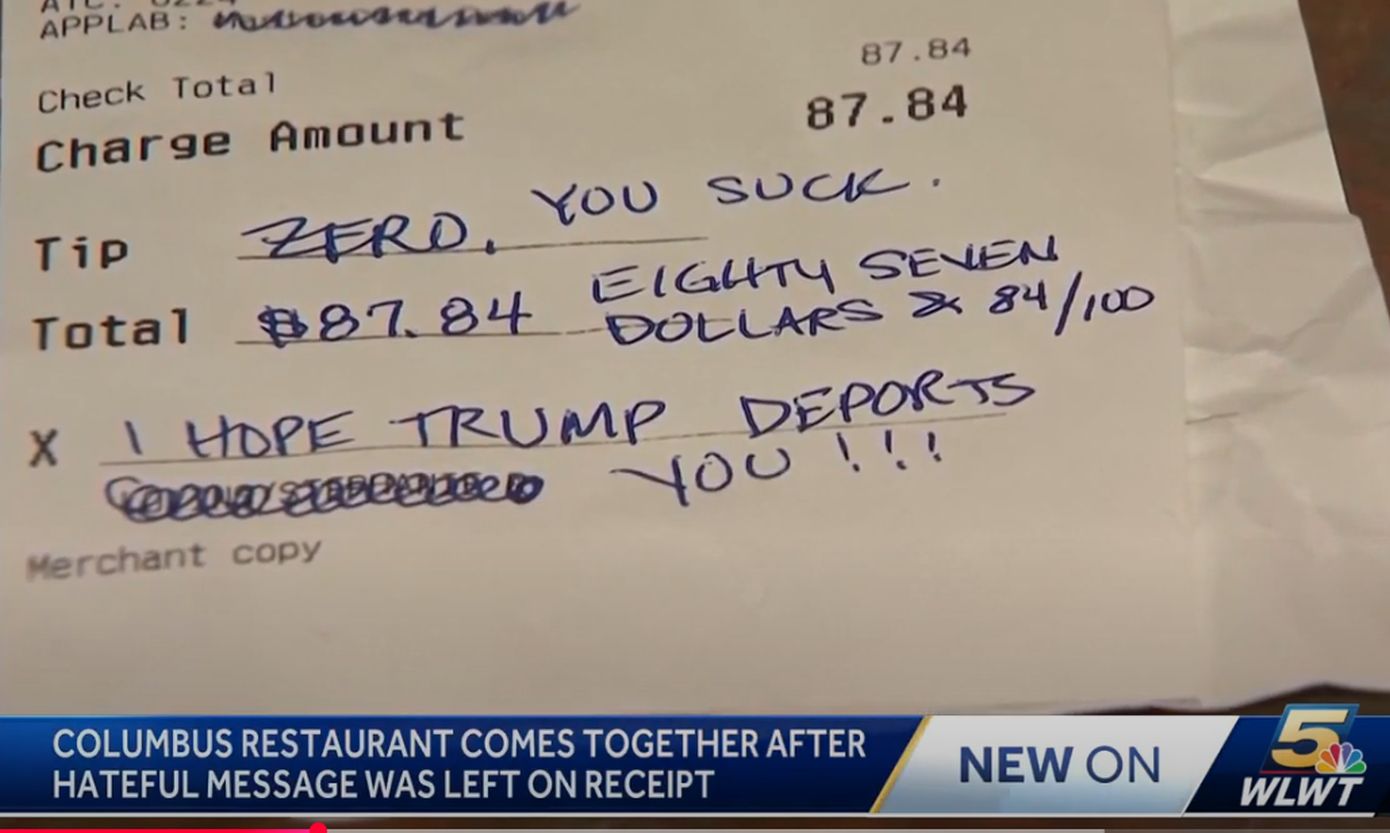 APPLAB:
Check Total 87.84
Charge Amount 87.84
Tip ZERO, YOU SUCK.
Total $87.84 EIGHTY SEVEN
DOLLARS & 84/100
X I HOPE TRUMP DEPORTS
YOU!!!
Merchant copy
COLUMBUS RESTAURANT COMES TOGETHER AFTER
HATEFUL MESSAGE WAS LEFT ON RECEIPT
NEW ON
5
WLWT